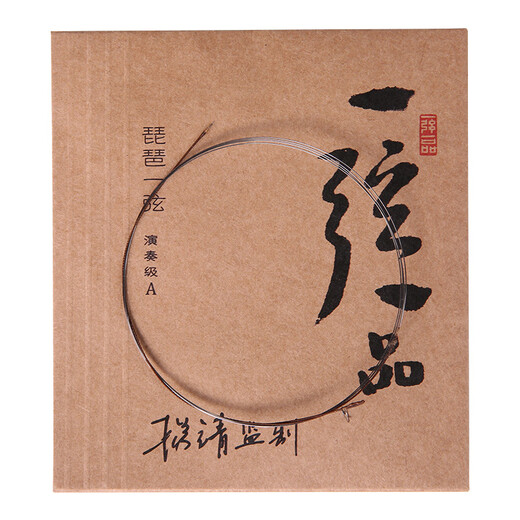 一弦一品
一弦一品
琵琶一弦
演奏级A
监制